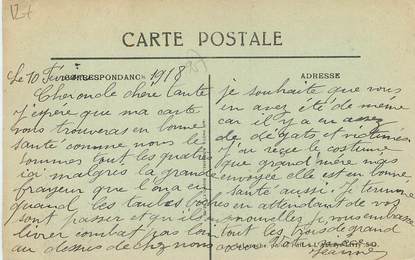 CARTE POSTALE
CORRESPONDANCE
ADRESSE
Le 10 1918
Cher oncle chère tante
J'espère que ma carte
vous trouveras en bonne
santé comme nous le
sommes tout les quatre
ici malgrès la grande
frayeur que l'on a eu
quand les taubes
sont passer et qu'il
livrer combat pas loin
au dessus de chez nous
je souhaite que vous
en avez été de même
car il y a eu assez
de dégats et victimes
J'ai reçue le costume
que grand mère m'as
envoyée elle est en bonne
santé aussi. Je termine
en attendant de vos
nouvelles je vous embrasse
tout les trois de grand
Jeanne